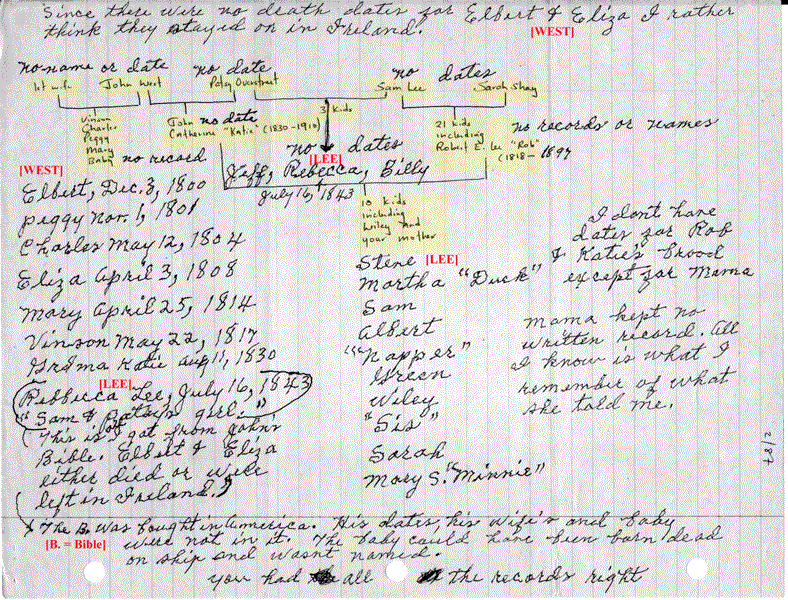 Since there were no death dates for Elbert & Eliza I rather
think they stayed on in Ireland.
[WEST]
no name or date no date no dates
1st wife John West Patsy Overstreet Sam Lee Sarah Shay
Vinson
Charles
Peggy
Mary
Baby no record
John no date
Catherine "Katie" (1830-1910)
3 kids
21 kids
including
Robert E. Lee "Rob"
(1818-1897
no records or names
no dates
[LEE]
Jeff, Rebecca, Billy
July 16, 1843
10 kids
including
Wiley and
your mother
[WEST]
Elbert, Dec. 3, 1800
Peggy Nov. 1, 1801
Charles May 12, 1804
Eliza April 3, 1808
Mary April 25, 1814
Vinson May 22, 1817
Grdma Katie Aug 11, 1830
[LEE]
Rebbecca Lee, July 16, 1843
"Sam & Patsy's girl."
(This is I got from John's
Bible. Elbert & Eliza
either died or were
left in Ireland.)
Steve [LEE]
Martha "Duck"
Sam
Albert
"Napper"
Green
Wiley
"Sis"
Sarah
Mary S. "Minnie"
I don't have
dates for Rob
& Katie's brood
except for Mama
Mama kept no
written record. All
I know is what I
remember of what
she told me.
2/87
The B. was bought in America. His dates, his wife's and baby
[B. = Bible] were not in it. The baby could have been born dead
on ship and wasn't named.
You had all the records right